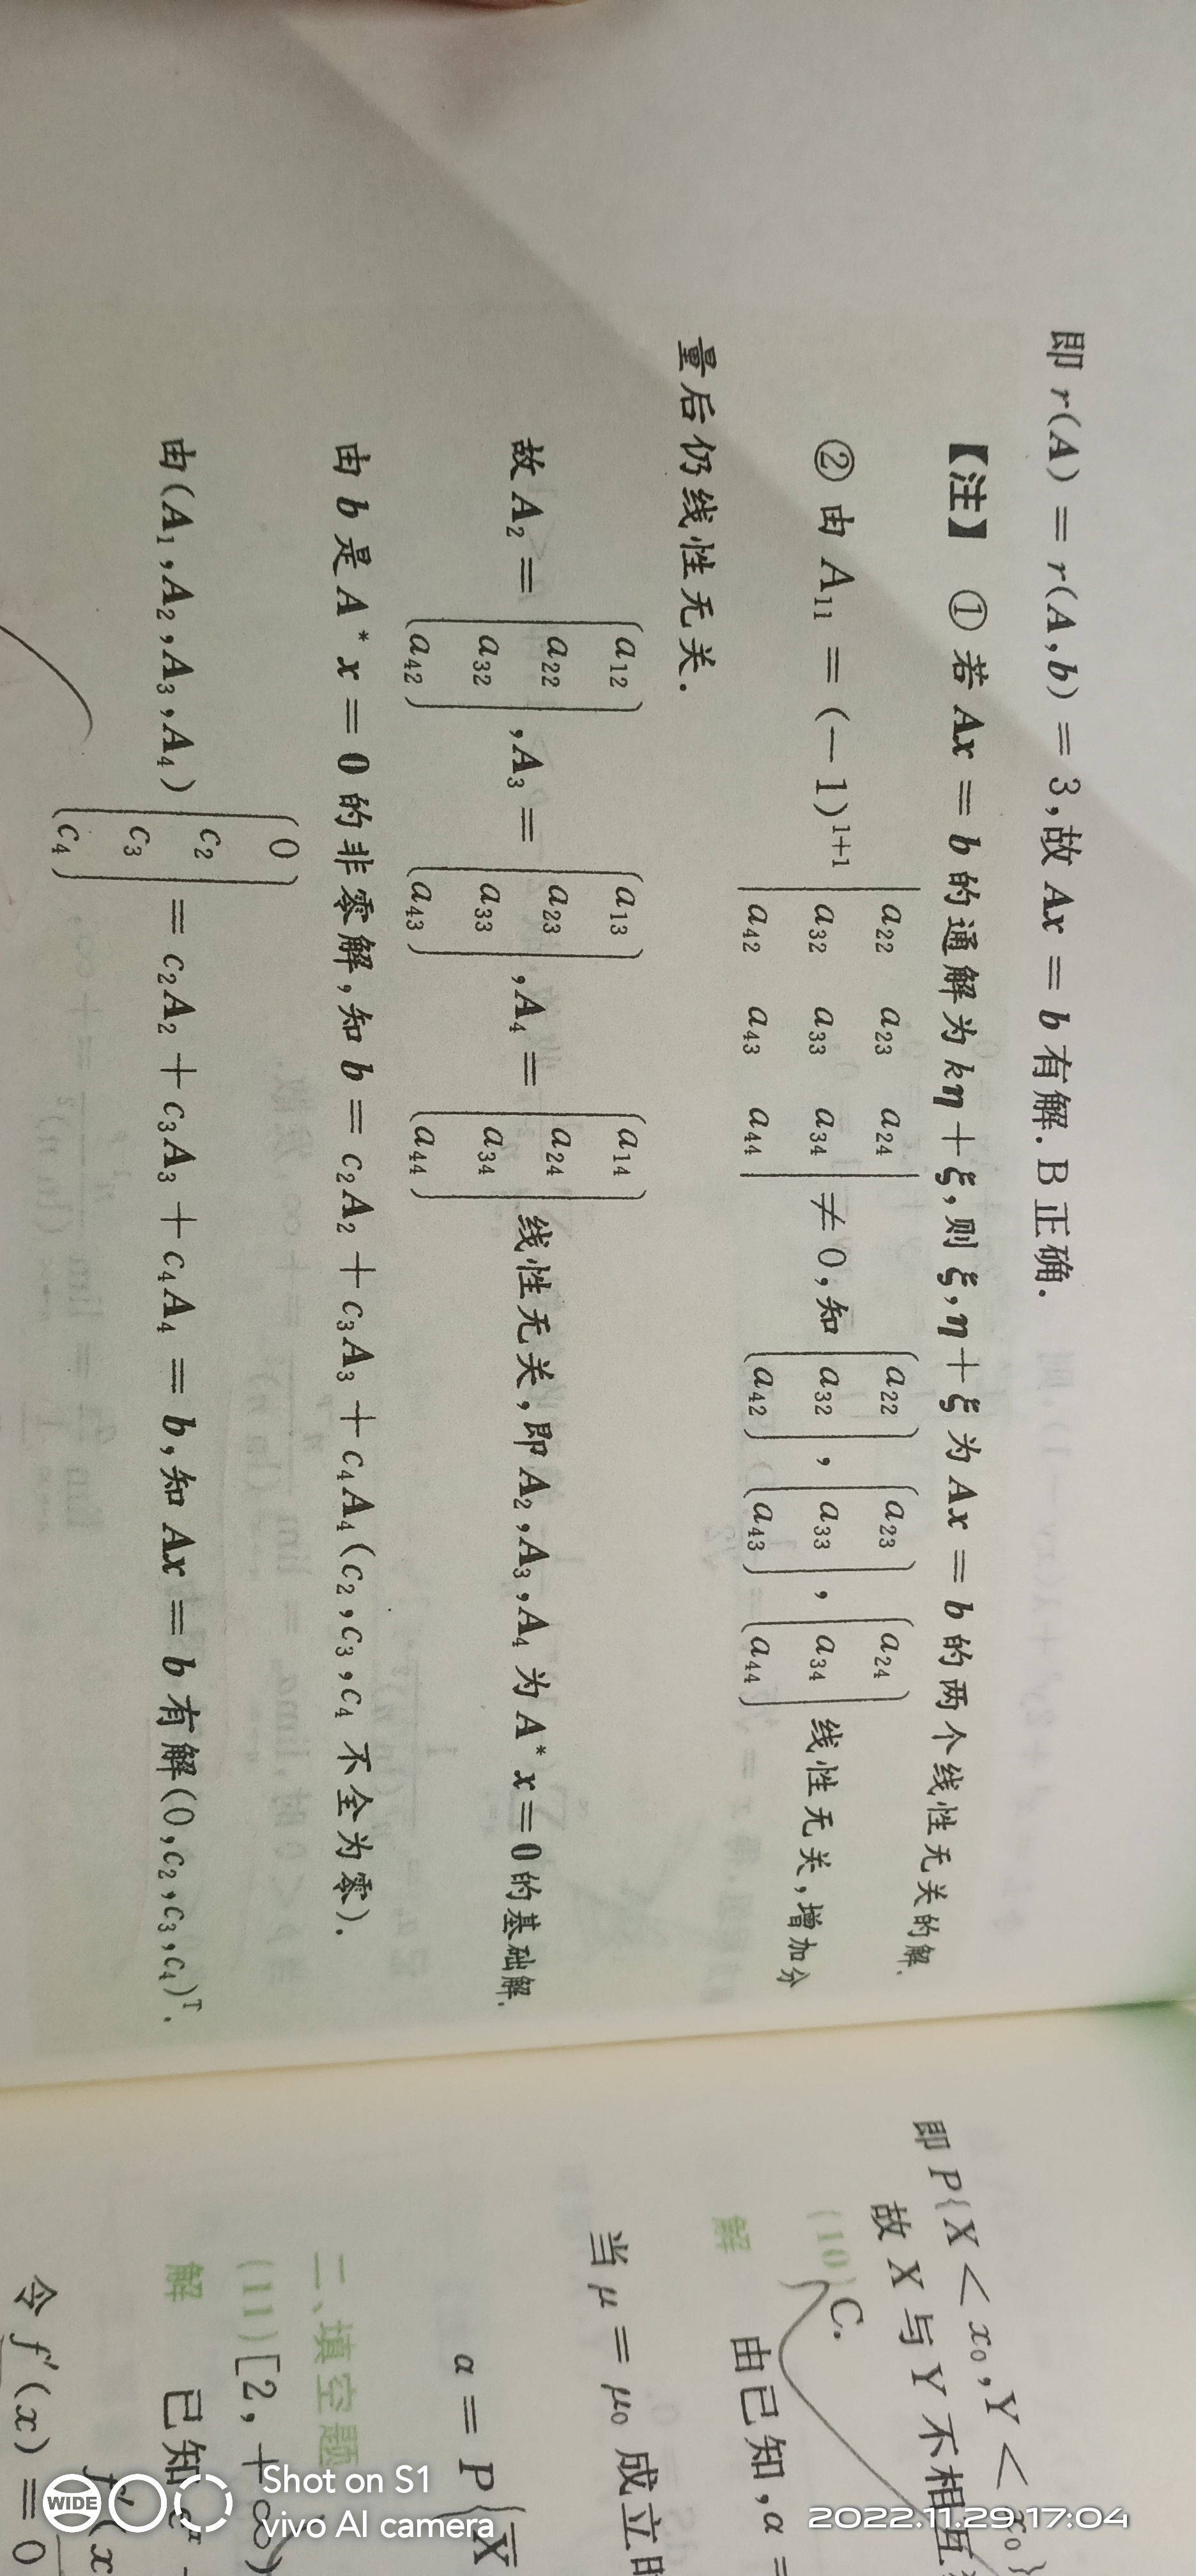 即 r(A) = r(A,b) = 3,故 Ax = b 有解. B 正确.
【注】 ① 若 Ax = b 的通解为 kη + ξ,则 ξ,η + ξ 为 Ax = b 的两个线性无关的解.
② 由 A₁₁ = (−1)¹⁺¹ | a₂₂ a₂₃ a₂₄ ; a₃₂ a₃₃ a₃₄ ; a₄₂ a₄₃ a₄₄ | ≠ 0,知 (a₂₂ ; a₃₂ ; a₄₂) , (a₂₃ ; a₃₃ ; a₄₃) , (a₂₄ ; a₃₄ ; a₄₄) 线性无关,增加分
量后仍线性无关.
故 A₂ = (a₁₂ ; a₂₂ ; a₃₂ ; a₄₂) ,A₃ = (a₁₃ ; a₂₃ ; a₃₃ ; a₄₃) ,A₄ = (a₁₄ ; a₂₄ ; a₃₄ ; a₄₄) 线性无关,即 A₂,A₃,A₄ 为 A*x = 0 的基础解.
由 b 是 A*x = 0 的非零解,知 b = c₂A₂ + c₃A₃ + c₄A₄(c₂,c₃,c₄ 不全为零).
由 (A₁,A₂,A₃,A₄) (0 ; c₂ ; c₃ ; c₄) = c₂A₂ + c₃A₃ + c₄A₄ = b,知 Ax = b 有解(0,c₂,c₃,c₄)ᵀ.
即 P{X < x₀,Y < x₀}
故 X 与 Y 不相互
(10) C.
解 由已知,α =
当 μ = μ₀ 成立时
α = P{X̄
二、填空题
(11) [2, +∞)
解 已知
令 f′(x) = 0
f′(x
WIDE
Shot on S1
vivo AI camera
2022.11.29 17:04